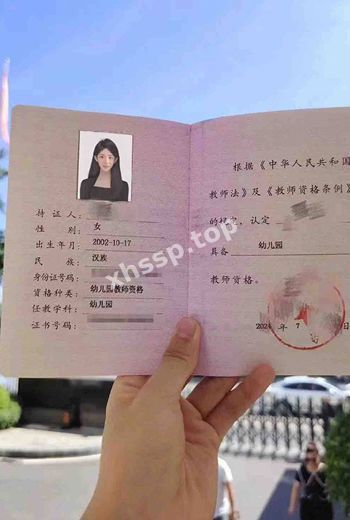 持 证 人：
性 别： 女
出生年月： 2002-10-17
民 族： 汉族
身份证号码：
资格种类： 幼儿园教师资格
任教学科： 幼儿园
证书号码：
根据《中华人民共和国
教师法》及《教师资格条例》
的规定，认定
具备 幼儿园
教师资格。
2024 年 7 日
xhssp.top